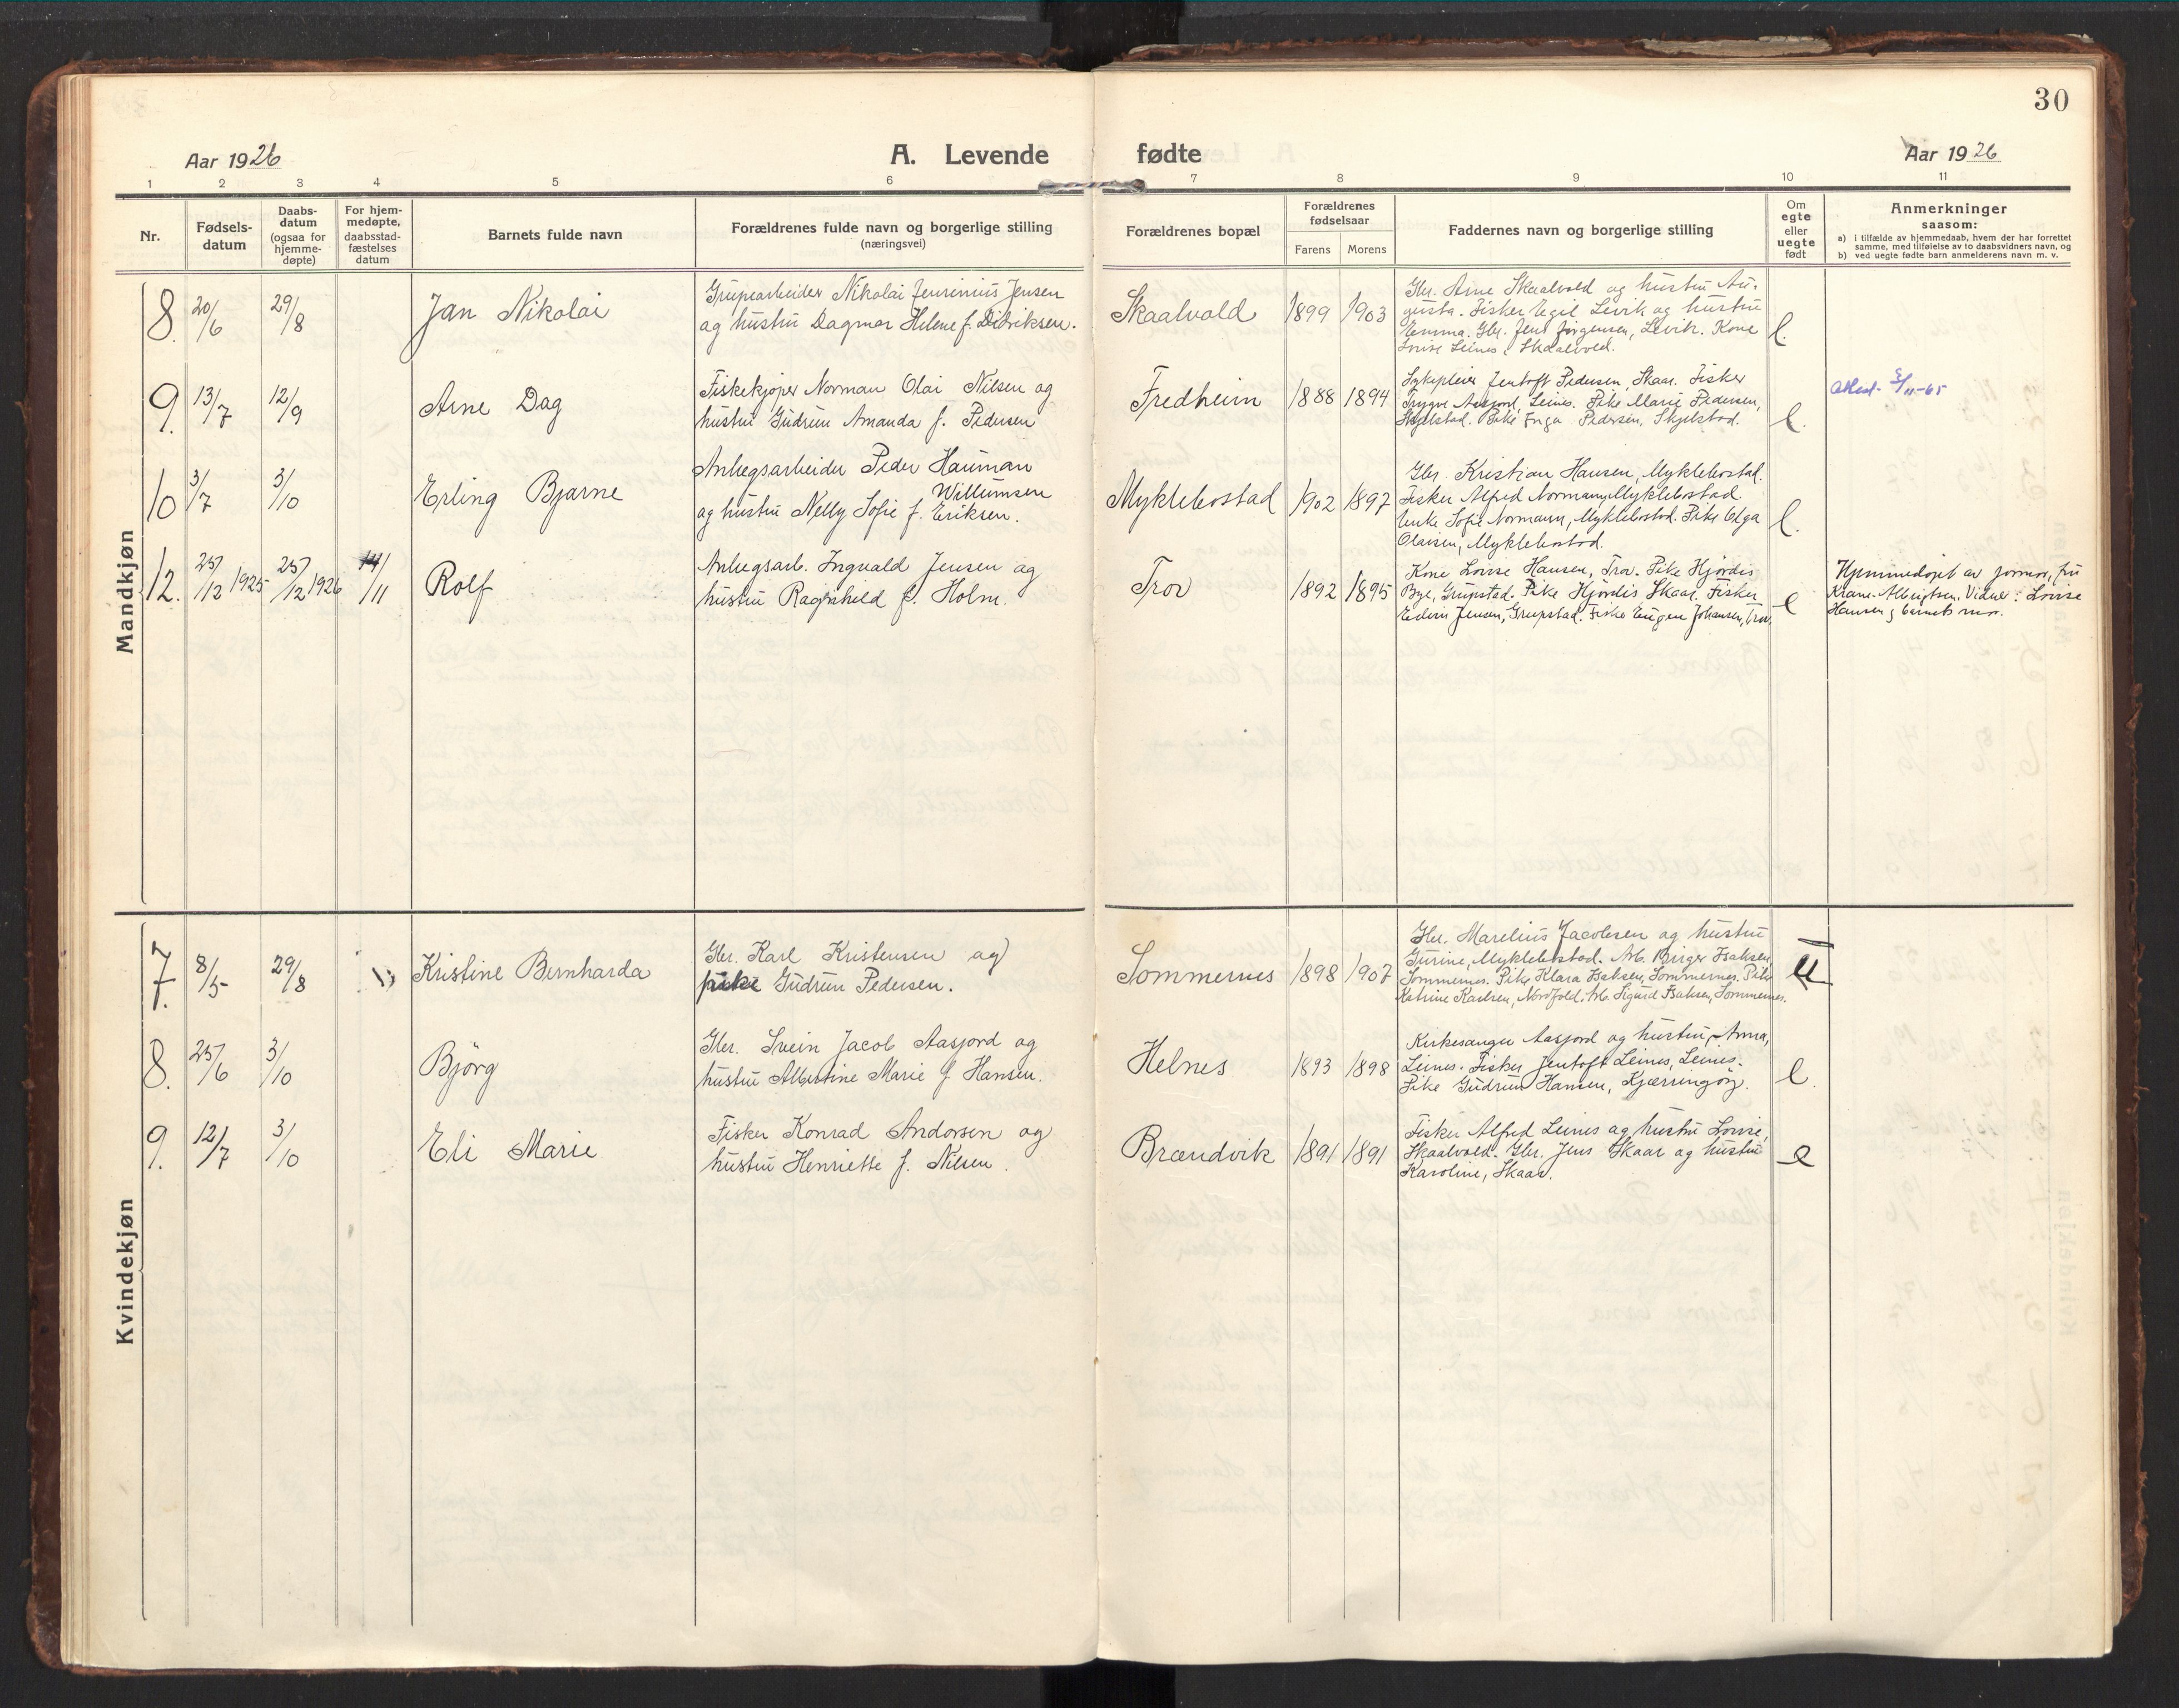 30
Aar 1926
A. Levende
fødte
Aar 1926
1 2 3 4 5 6 7 8 9 10 11
Nr.
Fødsels-
datum
Daabs-
datum
(ogsaa for
hjemme-
døpte)
For hjem-
medøpte,
daabsstad-
fæstelses
datum
Barnets fulde navn
Forældrenes fulde navn og borgerlige stilling
(næringsvei)
Forældrenes bopæl
Forældrenes
fødselsaar
Farens Morens
Faddernes navn og borgerlige stilling
Om
egte
eller
uegte
født
Anmerkninger
saasom:
a) i tilfælde av hjemmedaab, hvem der har forrettet
samme, med tilføielse av to daabsvidners navn, og
b) ved uegte fødte barn anmelderens navn m. v.
Mandkjøn
8. 20/6 29/8 Jan Nikolai
Grupearbeider Nikolai Jensenius Jensen
og hustru Dagmar Helene f. Didriksen.
Skaalvold 1899 1903
Gbr. Arne Skaalvold og hustru Au-
gusta. Fisker Egil Levik og hustru
Emma. Gbr. Jens Jörgensen, Levik. Kone
Lovise Leines, Skaalvold.
e.
9. 13/7 12/9 Arne Dag
Fiskekjøper Norman Olai Nilsen og
hustru Gudrun Amanda f. Pedersen
Fredheim 1888 1894
Sykepleier Jentoft Pedersen, Skaar. Fisker
Trygve Aasjord, Leines. Pike Marie Pedersen,
Skjelstad. Pike Inga Pedersen, Skjelstad.
e.
Attest 5/11-65
10 3/7 3/10 Erling Bjarne
Anlegsarbeider Peder Hauman
Willumsen
og hustru Nelly Sofie f. Eriksen.
Myklebostad 1902 1897
Gbr. Kristian Hansen, Myklebostad.
Fisker Alfred Normann, Myklebostad.
Enke Sofie Normann, Myklebostad. Pike Olga
Olaisen, Myklebostad.
e.
12. 25/12 1925 25/12 1926 14/11 Rolf
Anlegsarb. Ingvald Jensen og
hustru Ragnhild f. Holm.
Trov 1892 1895
Kone Lovise Hansen, Trov. Pike Hjørdis
Bye, Grupstad. Pike Hjørdis Skaar. Fisker
Edvin Jensen, Grupstad. Fisker Eugen Johansen, Trov.
e
Hjemmedøpt av jormor, fru
Krane-Albrigtsen. Vidner: Lovise
Hansen, barnets mor.
Kvindekjøn
7. 8/5 29/8 Kristine Bernharda
Gbr. Karl Kristensen og
pike Gudrun Pedersen.
Sommernes 1898 1907
Gbr. Marelius Jacobsen og hustru
Gurine, Myklebostad. Arb. Birger Isaksen,
Sommernes. Pike Klara Isaksen, Sommernes. Pike
Katrine Karlsen, Nordfold. Arb. Sigurd Isaksen, Sommernes.
U
8. 25/6 3/10 Björg
Gbr. Svein Jacob Aasjord og
hustru Albertine Marie f. Hansen.
Helnes 1893 1898
Kirkesanger Aasjord og hustru Anna,
Leines. Fisker Jentoft Leines, Leines.
Pike Gudrun Hansen, Kjærringöy.
e.
9. 12/7 3/10 Eli Marie
Fisker Konrad Andorsen og
hustru Henriette f. Nilsen.
Brændvik 1891 1891
Fisker Alfred Leines og hustru Lovise,
Skaalvold. Gbr. Jens Skaar og hustru
Karoline, Skaar.
e